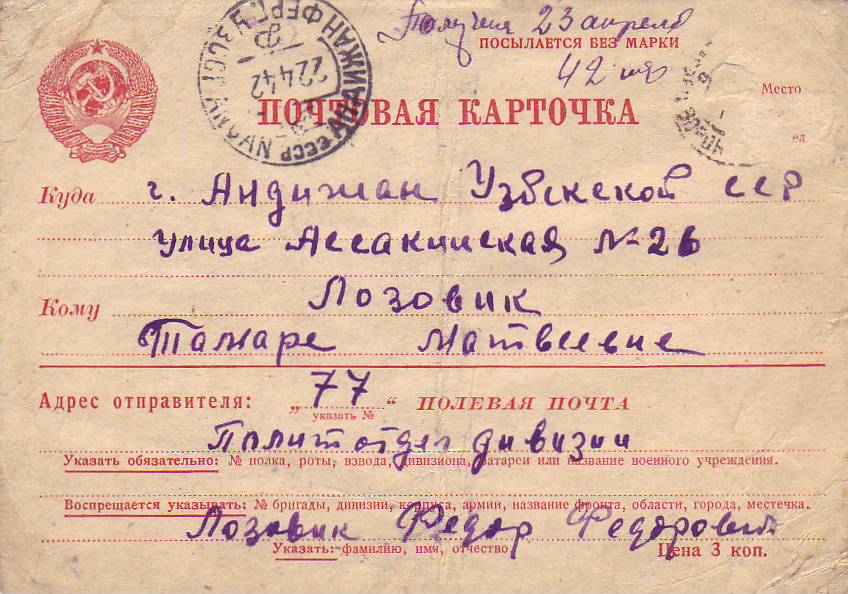 Получена 23 апреля
ПОСЫЛАЕТСЯ БЕЗ МАРКИ
42
Место
АНДИЖАН ФЕРГ. УЗССР
22 4 42
СССР
ПОЧТОВАЯ КАРТОЧКА
Куда г. Андижан Узбекской ССР
улица Ассакинская № 26
Кому Лозовик
Тамаре Матвеевне
Адрес отправителя: „ 77 “ ПОЛЕВАЯ ПОЧТА
указать №
Политотдел дивизии
Указать обязательно: № полка, роты, взвода, дивизиона, батареи или название военного учреждения.
Воспрещается указывать: № бригады, дивизии, корпуса, армии, название фронта, области, города, местечка.
Лозовик Федор Федорович
Указать: фамилию, имя, отчество
Цена 3 коп.